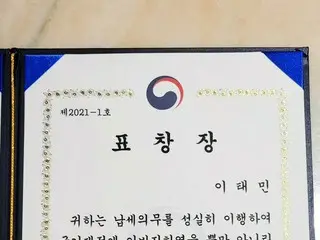 제2021-1호
표 창 장
이 태 민
귀하는 납세의무를 성실히 이행하여